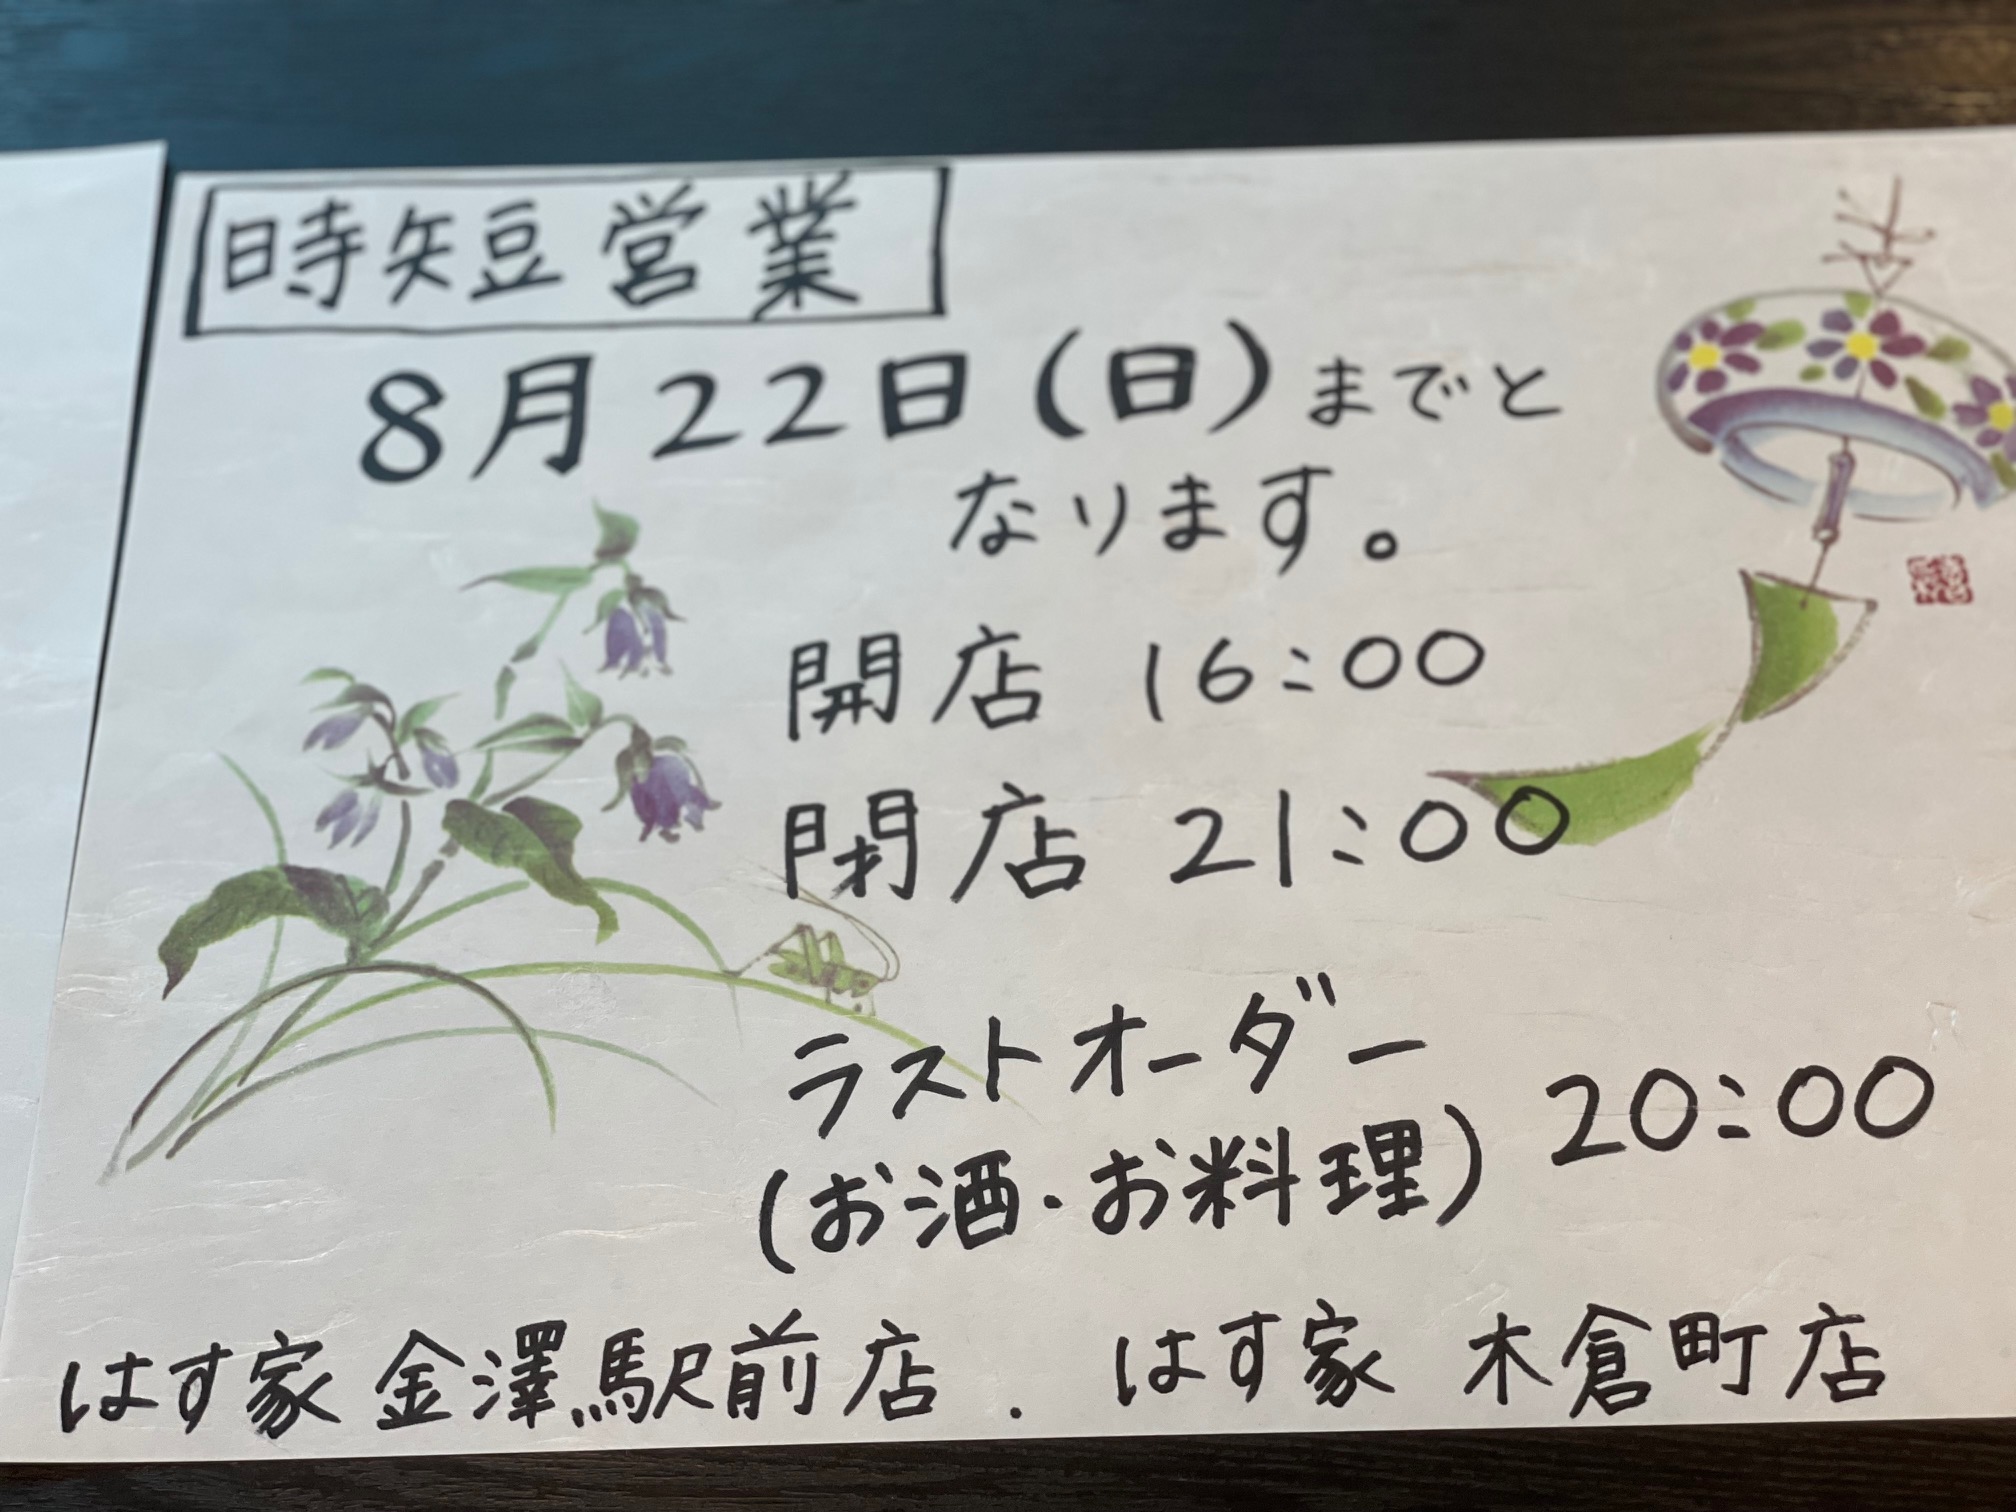 時短営業
8月22日(日)までと
なります。
開店 16:00
閉店 21:00
ラストオーダー
(お酒・お料理) 20:00
はす家 金澤駅前店. はす家 木倉町店